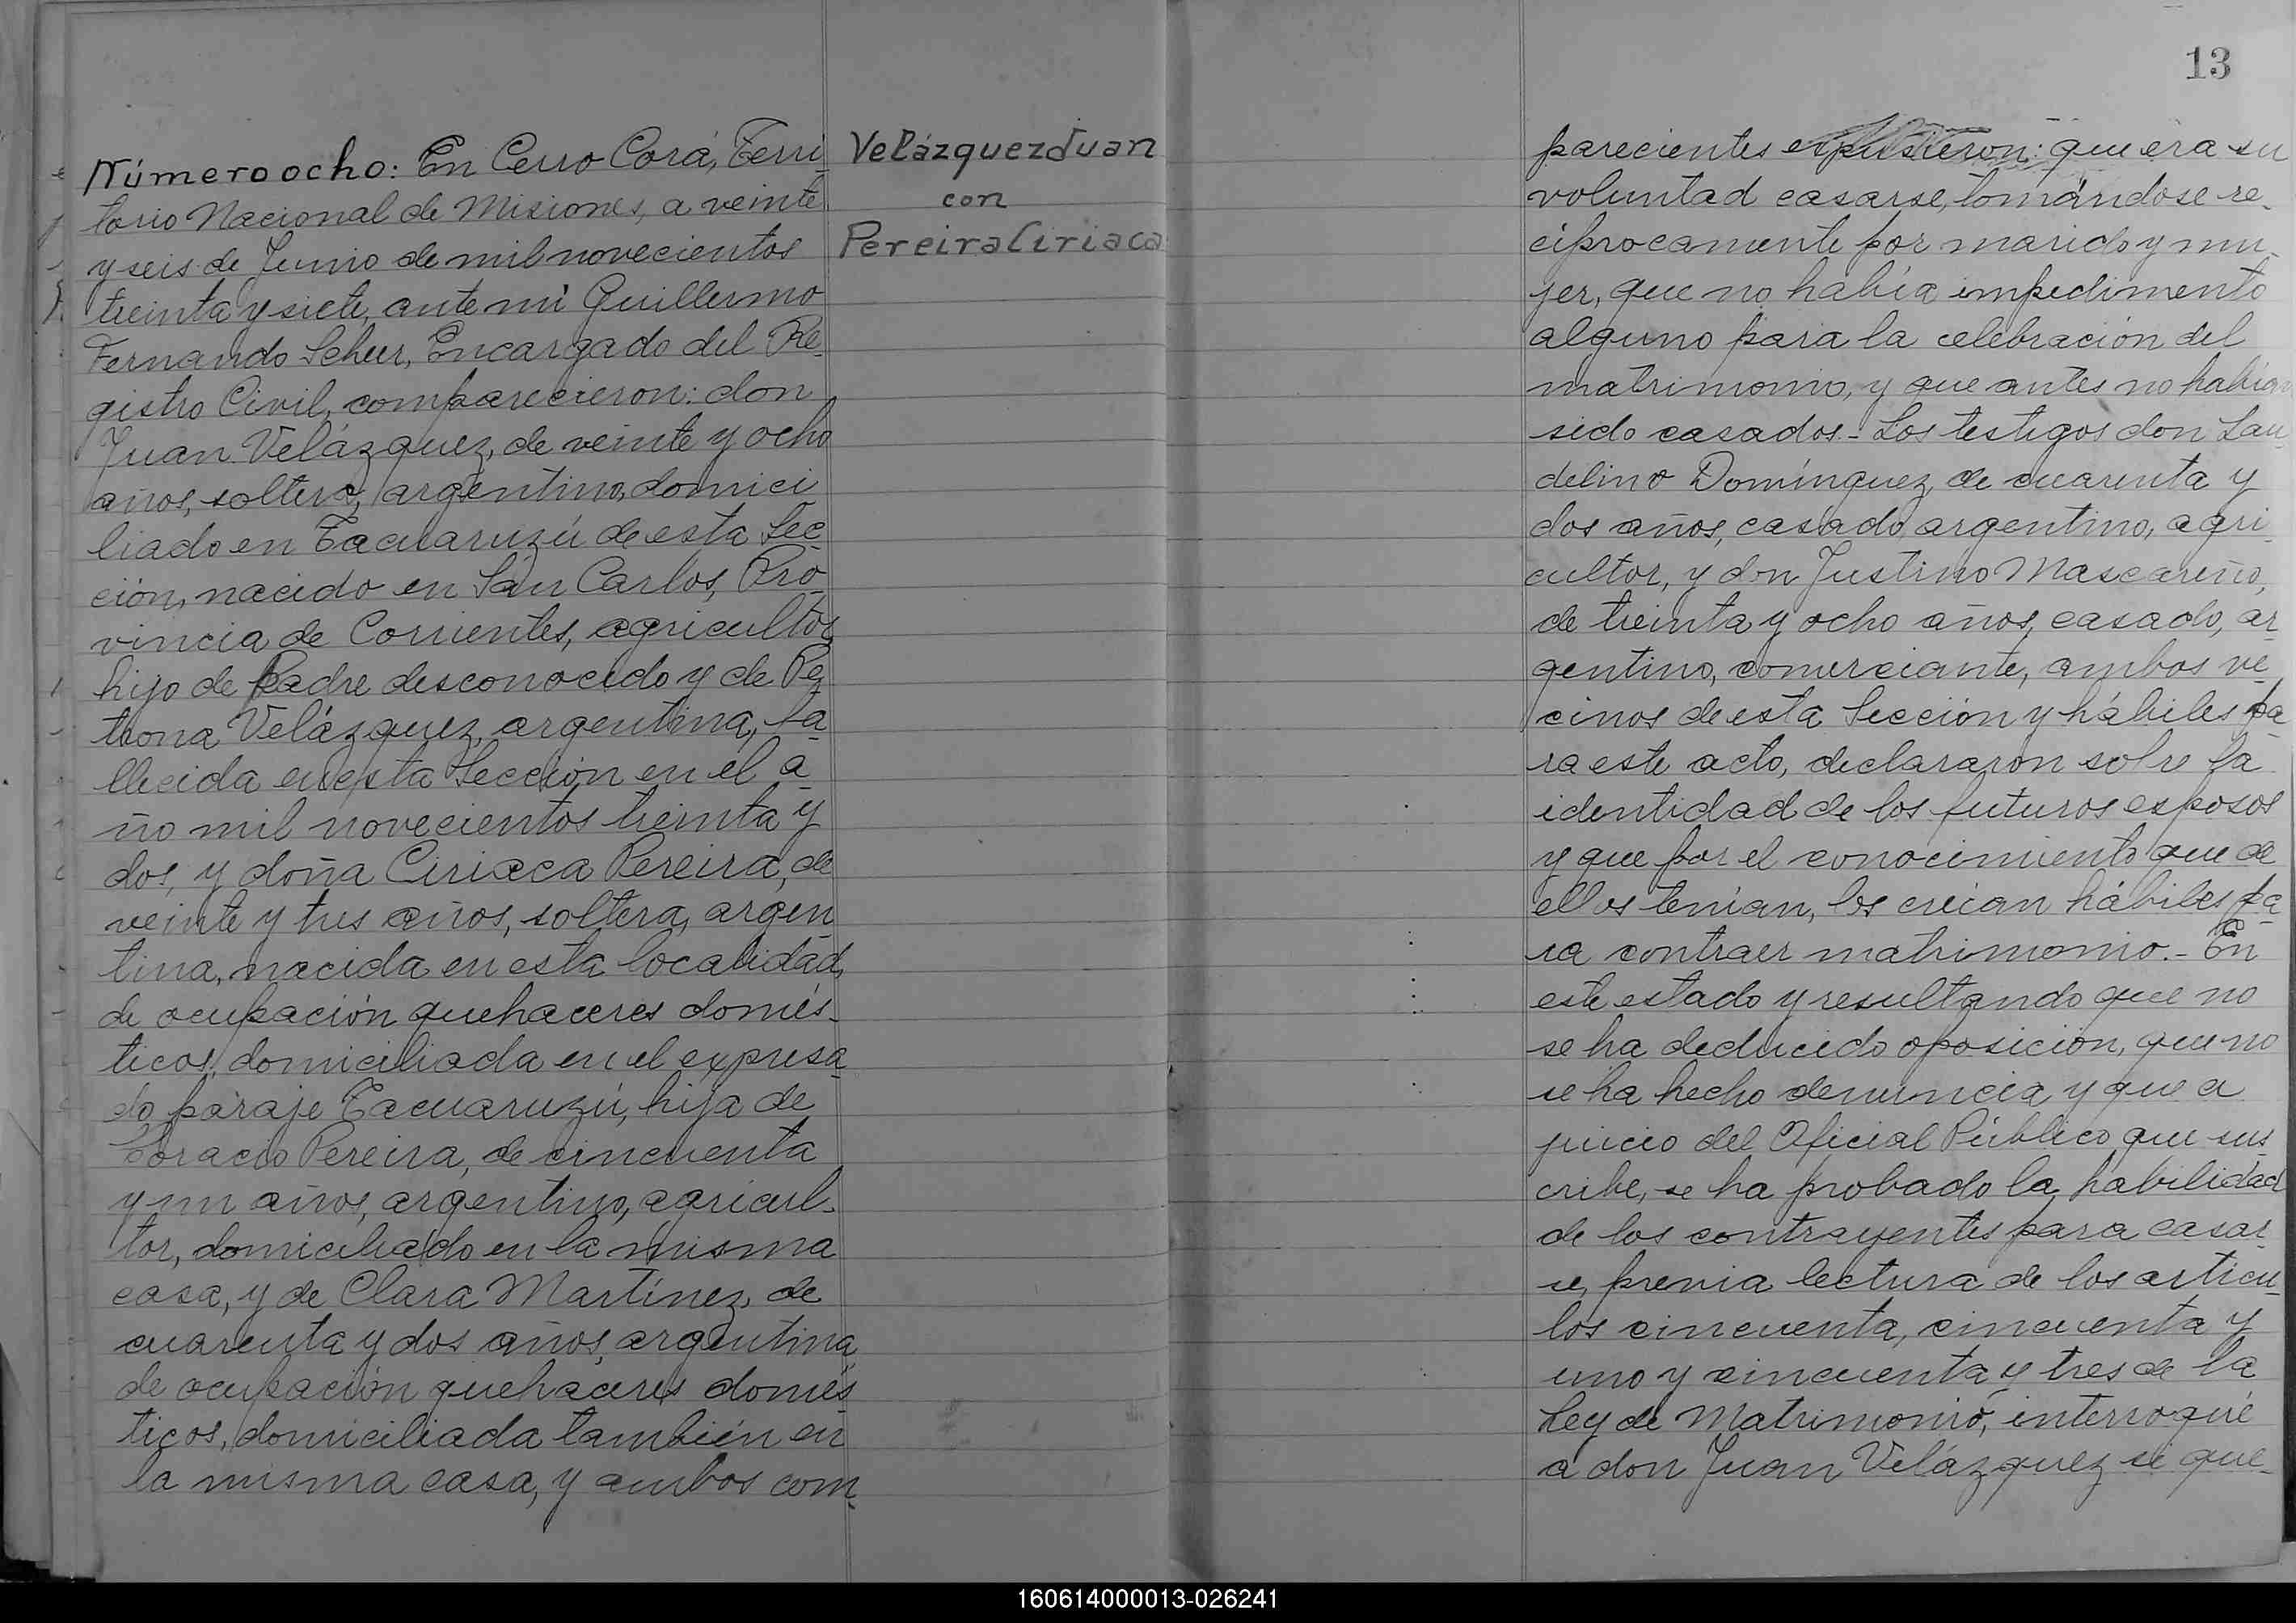 Número ocho: En Cerro Corá, Terri
torio Nacional de Misiones, a veinte
y seis de Junio de mil novecientos
treinta y siete, ante mi Guillermo
Fernando Scheer, Encargado del Re_
gistro Civil, comparecieron: don
Juan Velázquez, de veinte y ocho
años, soltero, argentino, domici
liado en Tacuaruzú de esta Sec
ción, nacido en San Carlos, Pro
vincia de Corrientes, agricultor,
hijo de Padre desconocido y de Pe
trona Velázquez, argentina, fa
llecida en esta Sección en el a
ño mil novecientos treinta y
dos, y doña Ciriaca Pereira, de
veinte y tres años, soltera, argen
tina, nacida en esta localidad,
de ocupación quehaceres domés_
ticos, domiciliada en el expresa
do paraje Tacuaruzú, hija de
Pereira, de cincuenta
y un años, argentino, agricul_
tor, domiciliado en la misma
casa, y de Clara Martínez, de
cuarenta y dos años, argentina,
de ocupación quehaceres domés
ticos, domiciliada también en
la misma casa, y ambos com_
Velázquez Juan
con
Pereira Ciriaca
13
parecientes expusieron: que era su
voluntad casarse, tomándose re_
ciprocamente por marido y mu_
jer, que no había impedimento
alguno para la celebración del
matrimonio, y que antes no habían
sido casados.- Los testigos don Lau_
delino Domínguez, de cuarenta y
dos años, casado, argentino, agri_
cultor, y don Justino Mascareño,
de treinta y ocho años, casado, ar
gentino, comerciante, ambos ve
cinos de esta Sección y hábiles pa
ra este acto, declararon sobre la
identidad de los futuros esposos
y que por el conocimiento que de
ellos tenían, los creían hábiles pa
ra contraer matrimonio.- En
este estado y resultando que no
se ha deducido oposición, que no
se ha hecho denuncia y que a
juicio del Oficial Público que sus
cribe, se ha probado la habilidad
de los contrayentes para casar_
se, previa lectura de los artícu_
los cincuenta, cincuenta y
uno y cincuenta y tres de la
Ley de Matrimonio, interrogué
a don Juan Velázquez si que_
160614000013-026241